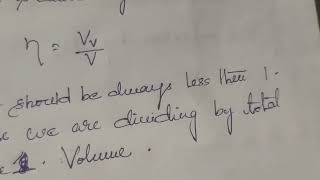 η = Vv/V
should be always less then 1.
we are dividing by total
Volume.